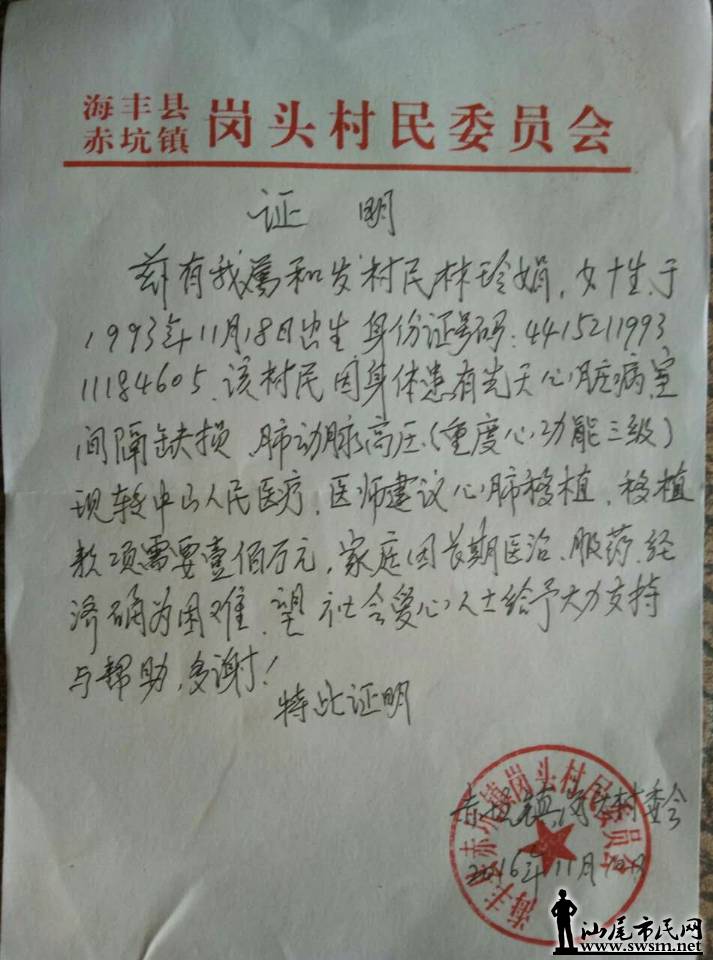 海丰县
赤坑镇 岗头村民委员会
证 明
兹有我属和发村民林玲娟,女性,于
1993年11月18日出生 身份证号码:4415211993
11184605.该村民因身体患有先天心脏病,室
间隔缺损、肺动脉高压(重度心功能三级)
现转中山人民医疗,医师建议心肺移植,移植
款项需要壹佰万元,家庭因长期医治、服药、经
济确为困难,望社会爱心人士给予大力支持
与帮助,多谢!
特此证明
赤坑镇岗头村委会
2016年11月
海丰县赤坑镇岗头村民委员会
汕尾市民网
www.swsm.net